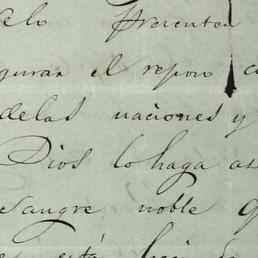 elo presenten
gurar el reposo
delas naciones y
Dios lo haga as
sangre noble q
está